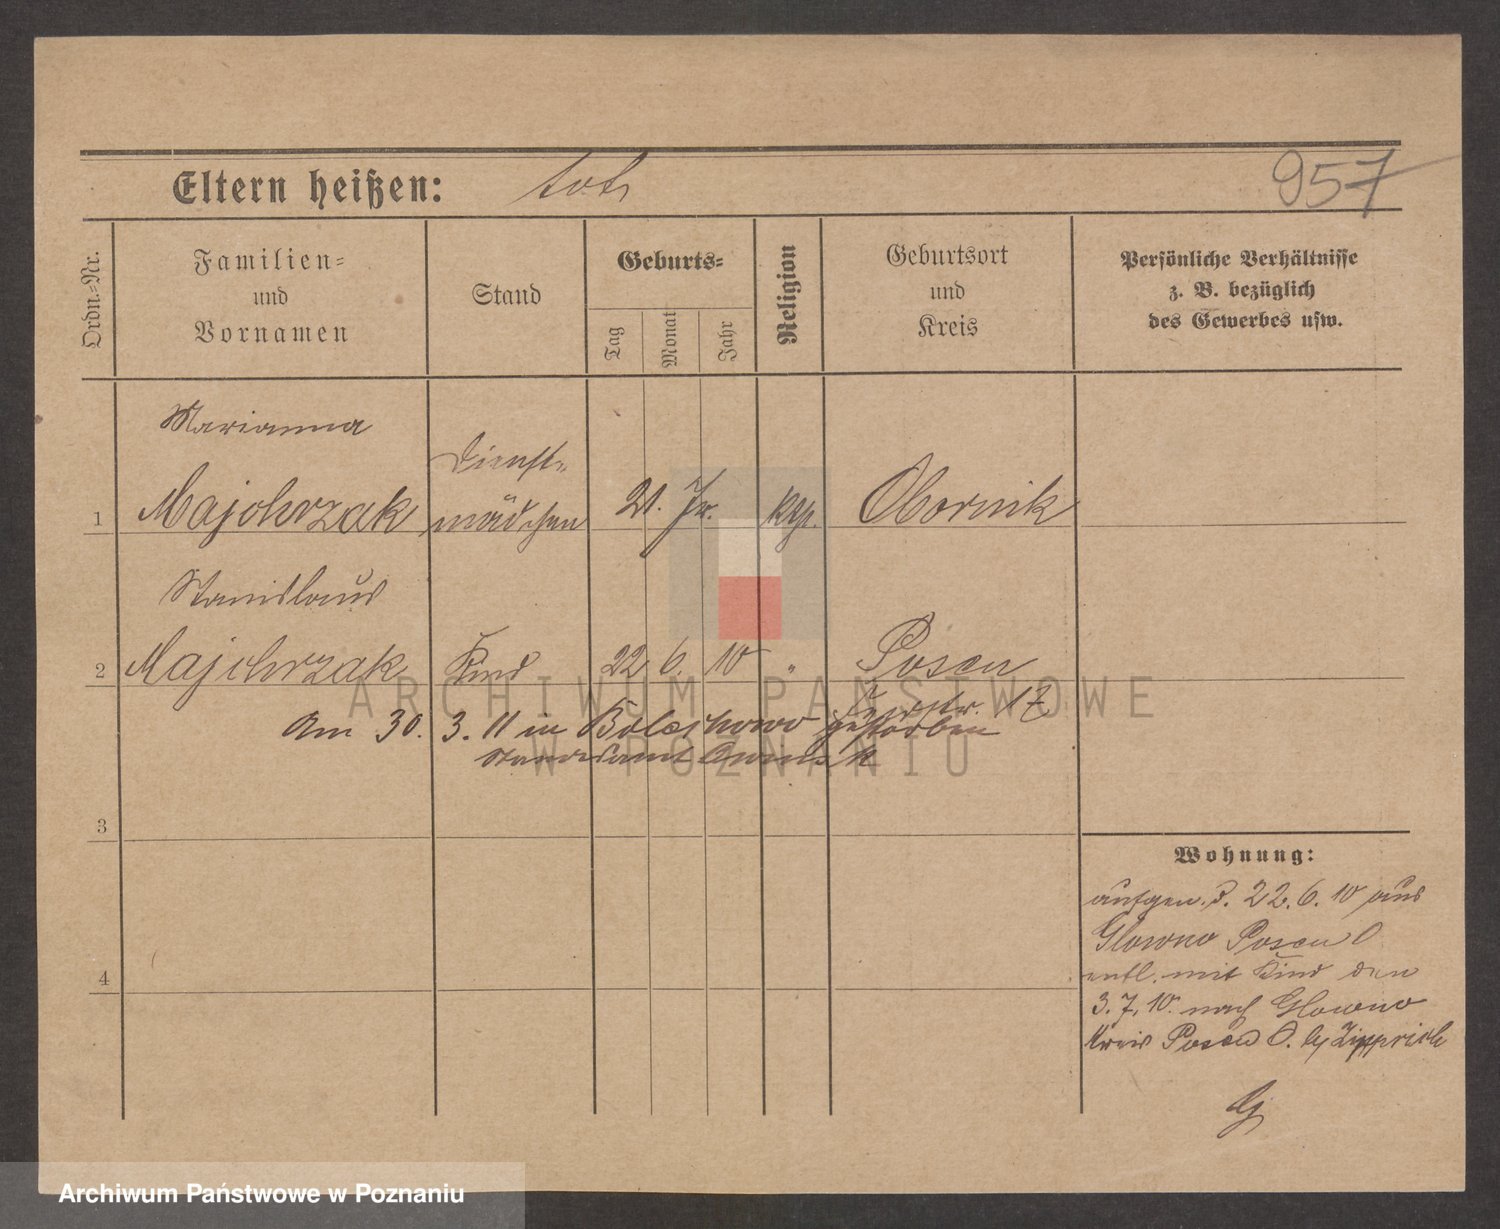 957
Eltern heißen: tot
Ordn=Nr.
Familien=
und
Vornamen
Stand
Geburts=
Tag
Monat
Jahr
Religion
Geburtsort
und
Kreis
Persönliche Verhältnisse
z. B. bezüglich
des Gewerbes usw.
Marianna
Dienst=
1 Majchrzak mädchen 21. Jr. ktg. Obornik
Stanislaus
2 Majchrzak Kind 22 6. 10 " Posen
17
Am 30. 3. 11 in Bolechowo gestorben
Standesamt Owinsk
3
Wohnung:
aufgen. d. 22. 6. 10 aus
Glowno Posen O
entl. mit Kind den
4
3. 7. 10. nach Glowno
Kreis Posen O. by Zipprich
ARCHIWUM PAŃSTWOWE
W POZNANIU
Archiwum Państwowe w Poznaniu